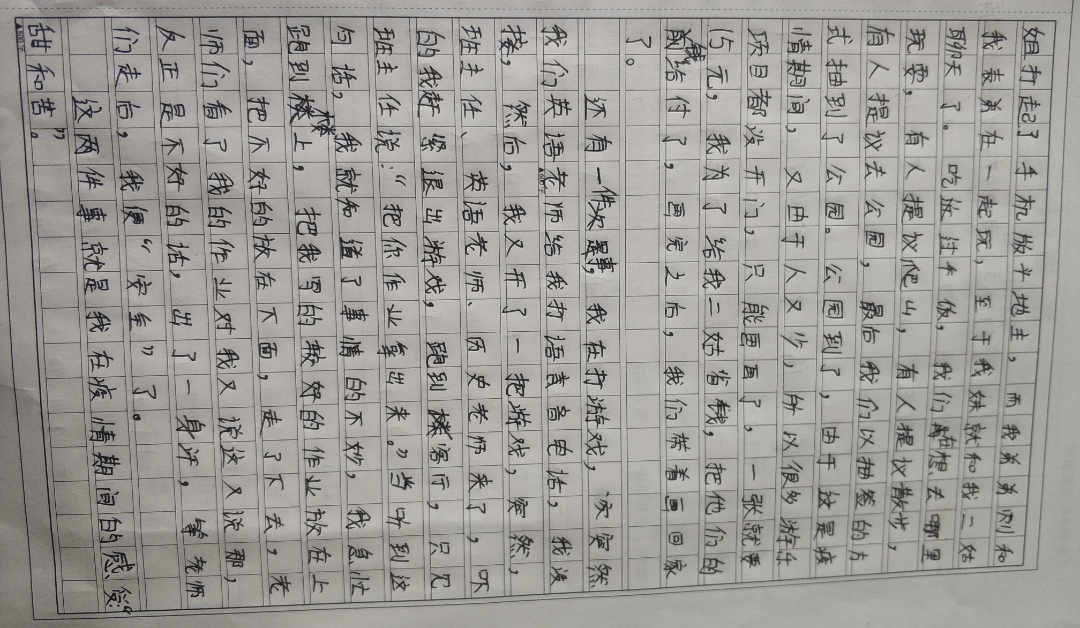 姐打起了手机版斗地主,而我弟弟则和
我表弟在一起玩,至于我妹就和我二姑
聊天了。吃放过午饭,我们在想去哪里
玩耍,有人提议爬山,有人提议散步,
有人提议去公园,最后我们以抽签的方
式抽到了公园。公园到了,由于这是疫
情期间,又由于人又少,所以很多游乐
项目都没开门,只能画画了,一张就要
15元,我为了给我二姑省钱,把他们的
钱给付了,画完之后,我们带着画回家
了。
还有一件事,我在打游戏,突然
我们英语老师给我打语音电话,我没
接,然后,我又开了一把游戏,突然,
班主任、英语老师、历史老师来了,吓
的我赶紧退出游戏,跑到楼客厅,只见
班主任说:“把你作业拿出来。”当听到这
句话,我就知道了事情的不妙,我急忙
跑到楼上,把我写的较好的作业放在上
面,把不好的放在下面,走了下去,老
师们看了我的作业对我又说这又说那,
反正是不好的话,出了一身汗,等老师
们走后,我便“安全”了。
这两件事就是我在疫情期间的感受“
甜和苦”。